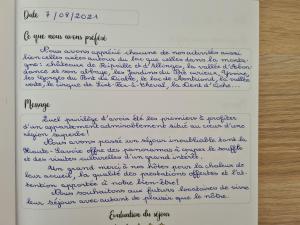 Date 7/08/2021
Ce que nous avons préféré
Nous avons apprécié chacune de nos activités aussi
bien celles axées autour du lac que celles dans la monta-
gne : châteaux de Ripaille et d'Allinges, la vallée d'Abon
dance et son abbaye, les Jardins du Pré curieux, Yvoire,
les Gorges du Pont du Diable, le lac de Montriond, la vallée
verte, le cirque de Sixt-Fer-à-Cheval, la Dent d'Oche...
Message
Quel privilège d'avoir été les premiers à profiter
d'un appartement admirablement situé au cœur d'une
région superbe !
Nous avons passé un séjour inoubliable tant la
Haute-Savoie offre des panoramas à couper le souffle
et des visites culturelles d'un grand intérêt.
Un grand merci à nos hôtes pour la chaleur de
leur accueil, la qualité des prestations offertes et l'at-
tention apportée à notre bien-être !
Nous souhaitons aux futurs locataires de vivre
leur séjour avec autant de plaisir que le nôtre.
Evaluation du séjour